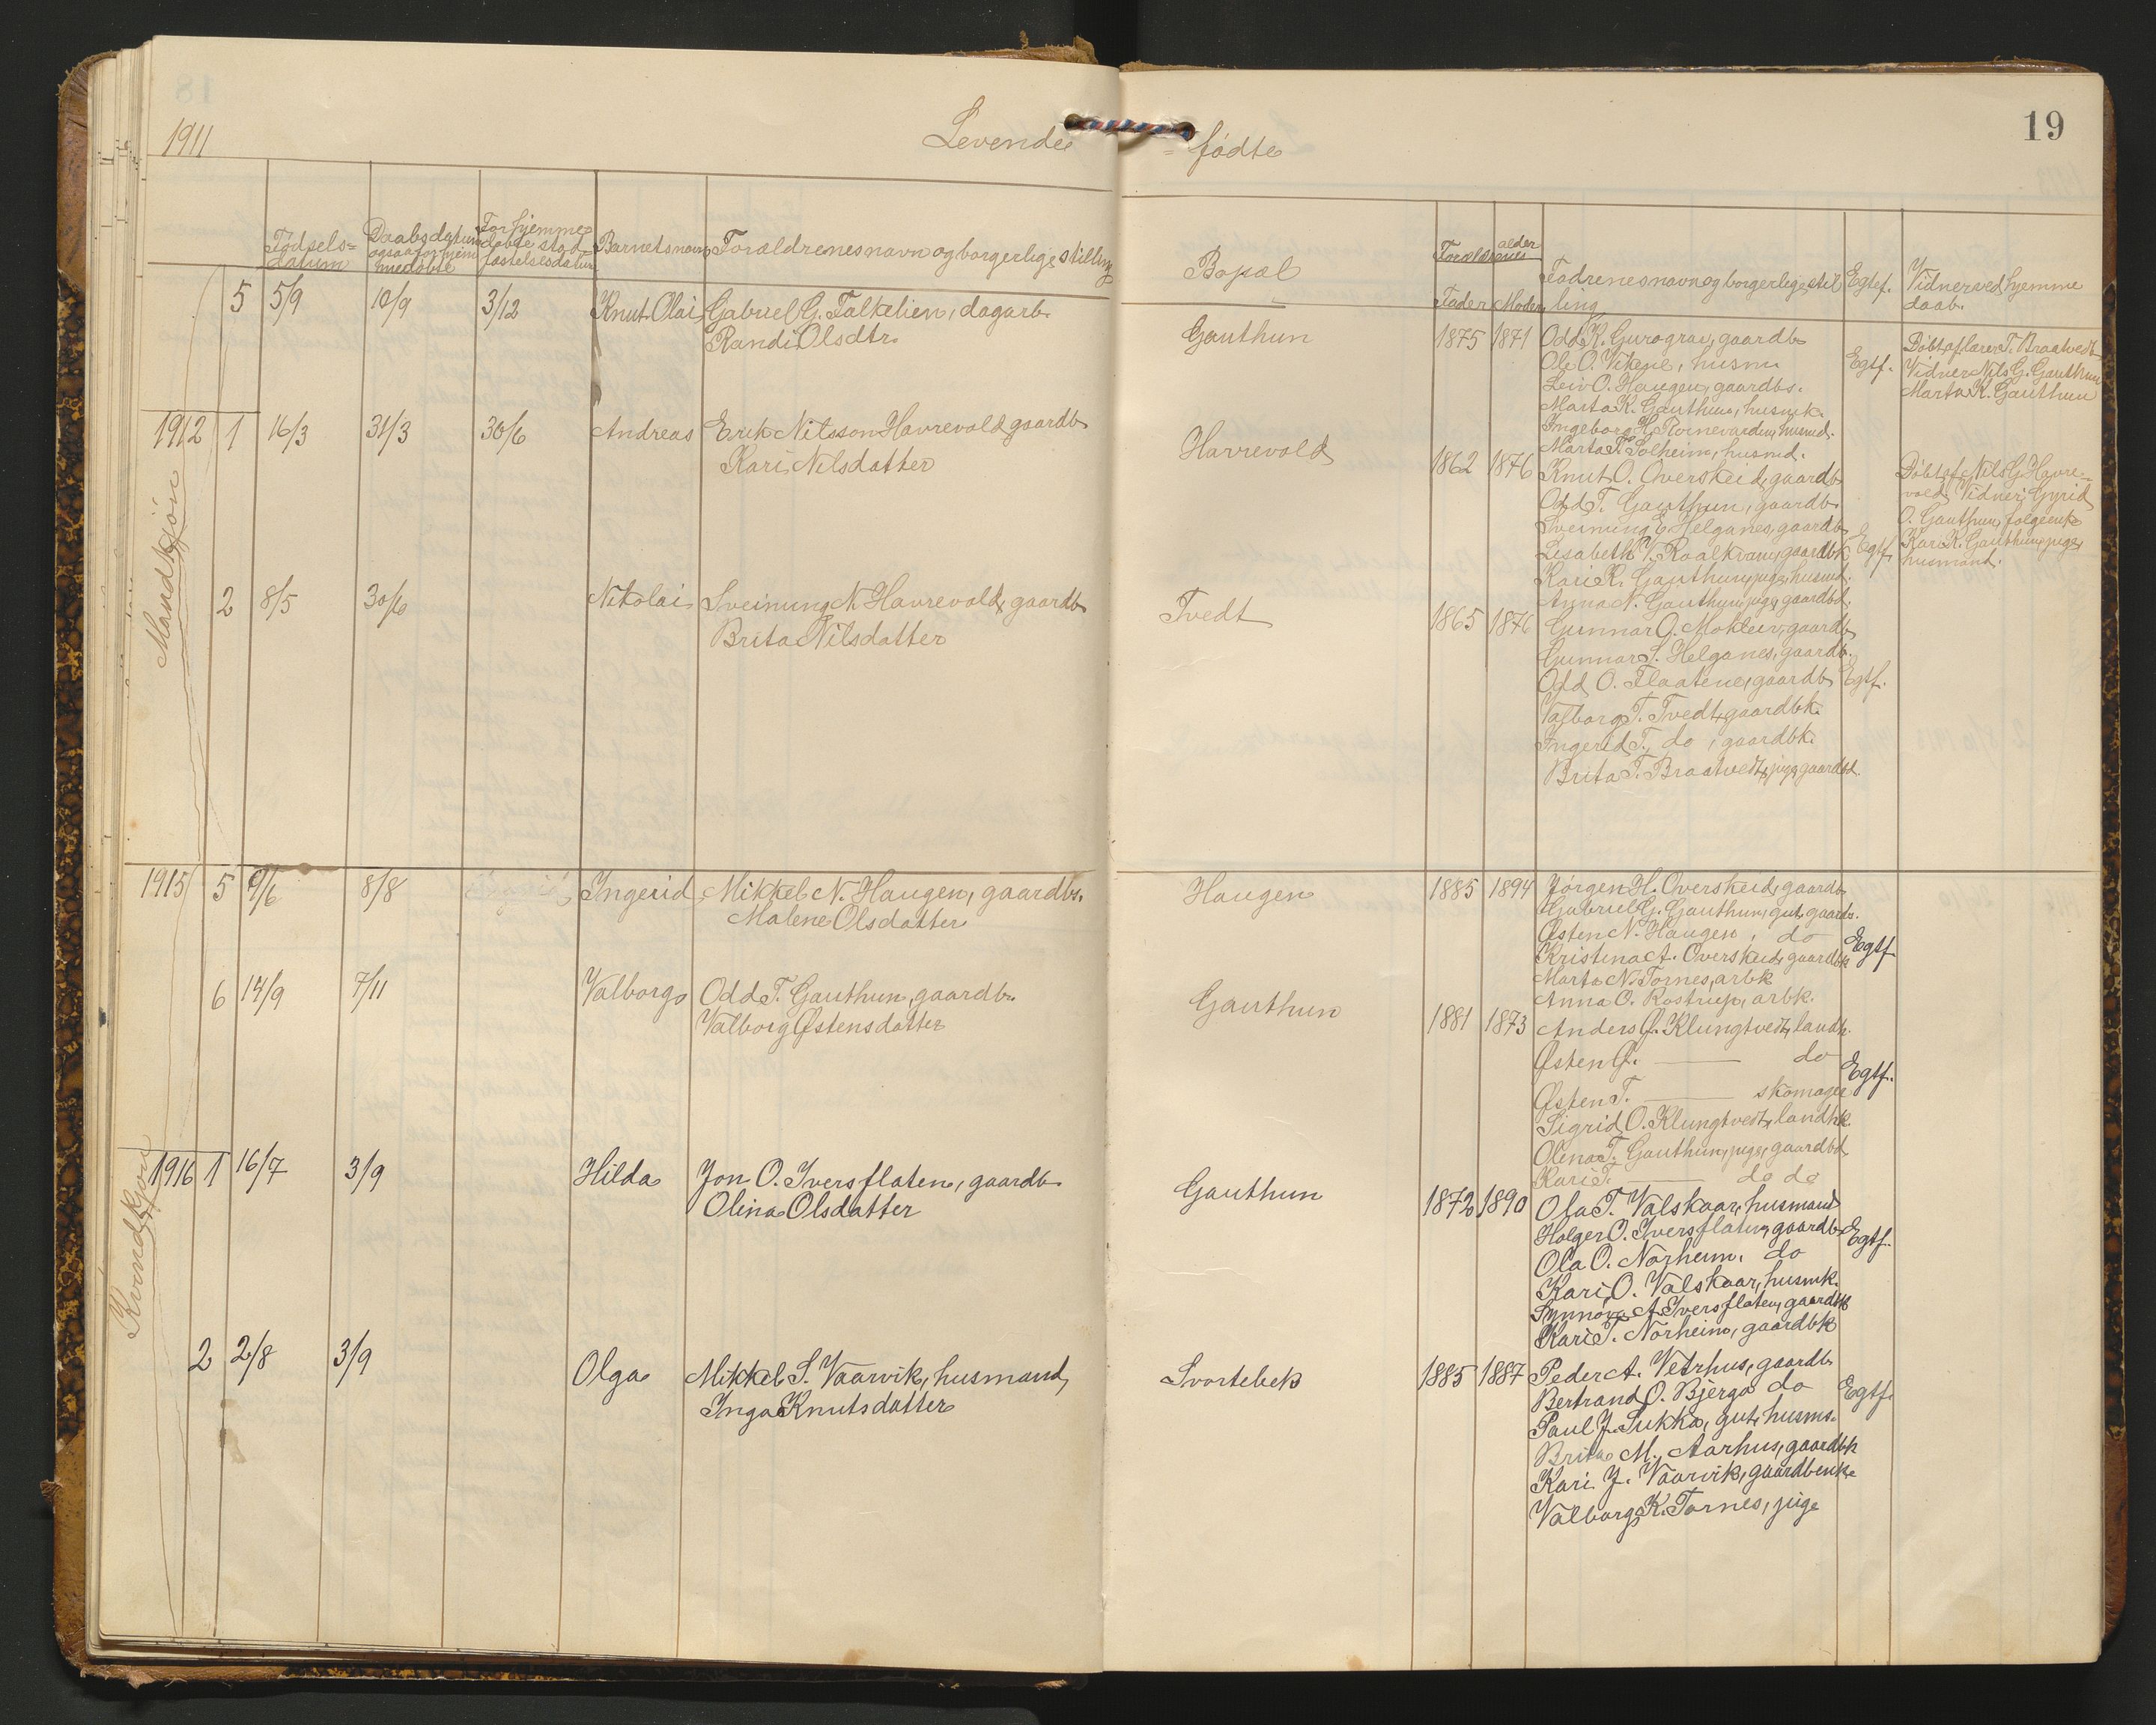 1911
Levende
=födte
19
Födsels=
datum
Daabsdatum
ogsaa for hjem
medöbte
For hjemme
döbte stad
fæstelsesdatum
Barnets navn
Forældrenes navn og borgerlige stilling
Bopæl
Forældrenes alder
Fader Moder
Fadrenes navn og borgerlige stil
ling
Egtef.
Vidner ved hjemme
daab.
Mandkjön
5 5/9 10/9 3/12 Knut Olai Gabriel G. Falkelien, dagarb.
Randi Olsdtr.
Gauthun 1875 1871 Odd K. Gurograv, gaardb.
Ole O. Vikene, husm.
Leiv O. Haugen, gaardbs.
Marta K. Gauthun, husmk.
Ingeborg H. Roinevarden, husmd.
Marta T. Solheim, husmd.
Egtf.
Döbt af lærer T. Braatvedt
Vidner Nils G. Gauthun
Marta K. Gauthun
1912 1 16/3 31/3 30/6 Andreas Erik Nilsson Havrevold gaardb.
Kari Nilsdatter
Havrevold 1862 1876 Knut O. Overskeid, gaardb.
Odd T. Gauthun, gaardb.
Sveinung E. Helganes, gaardb.
Lisabeth V. Roalkvam, gaardbk.
Kari K. Gauthun, pige, husmd.
Anna N. Gauthun, pige, gaardbd.
Egtf.
Döbt af Nils G. Havre-
vold Vidner: Gyrid
O. Gauthun, folgeenke
Kari K. Gauthun, pige,
husmand.
2 8/5 30/6 Nikolai Sveinung N. Havrevold, gaardb.
Brita Nilsdatter
Tvedt 1865 1876 Gunnar O. Mokleiv, gaardb.
Gunnar S. Helganes, gaardb.
Odd O. Flaatene, gaardb. Egtf.
Valborg T. Tvedt, gaardbk.
Ingerid T. do, gaardbk.
Brita T. Braatvedt, pige, gaardbd.
1915 5 9/6 8/8 Ingerid Mikkel N. Haugen, gaardbs.
Malene Olsdatter
Haugen 1885 1894 Jörgen H. Overskeid, gaardb.
Gabriel G. Gauthun, gut, gaardbs.
Østen N. Haugen, do
Kristina A. Overskeid, gaardbk.
Marta N. Tornes, arbk
Anna O. Rostrup, arbk.
Egtf.
6 14/9 7/11 Valborg Odd T. Gauthun, gaardb.
Valborg Østensdatter
Gauthun 1881 1873 Anders Ø. Klungtvedt, landh.
Østen Ø. — do
Østen T. — skomager
Sigrid O. Klungtvedt, landhk.
Olina T. Gauthun, pige, gaardbd.
Kari T. — do do
Egtf.
Kvindekjön
1916 1 16/7 3/9 Hilda Jon O. Iversflaten, gaardb.
Olina Olsdatter
Gauthun 1872 1890 Ola T. Valskaar, husmand
Holger O. Iversflaten, gaardb.
Ola O. Norheim, do
Kari O. Valskaar, husmk.
Synnöva A. Iversflaten, gaardbk
Kari T. Norheim, gaardbk
Egtf.
2 2/8 3/9 Olga Mikkel S. Vaarvik, husmand,
Inga Knutsdatter
Svortebek 1885 1887 Peder A. Vetrhus, gaardb.
Bertrand O. Bjerga do
Paul J. Sukka, gut, husms.
Brita M. Aarhus, gaardbk
Kari J. Vaarvik, gaardbenke
Valborg K. Tornes, pige
Egtf.